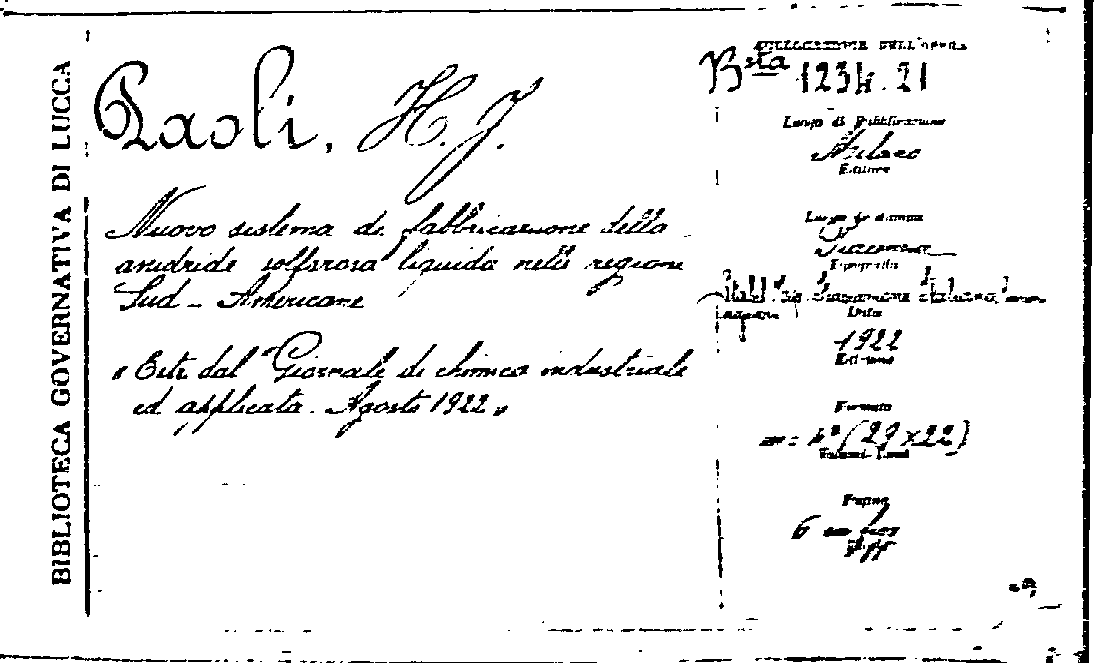 BIBLIOTECA GOVERNATIVA DI LUCCA
Paoli, H. J.
Nuovo sistema di fabbricazione della
anidride solforosa liquida nella regione
Sud-Americane
"Estr. dal Giornale di chimica industriale
ed applicata. Agosto 1922"
COLLOCAZIONE DELL'OPERA
Bsta 1234.21
Luogo di Pubblicazione
Milano
Editore
Luogo di stampa
Piacenza
Tipografia
Stab. Tip. Piacentino
Data
1922
Edizione
Formato
in-4° (29x22)
Pagine
6